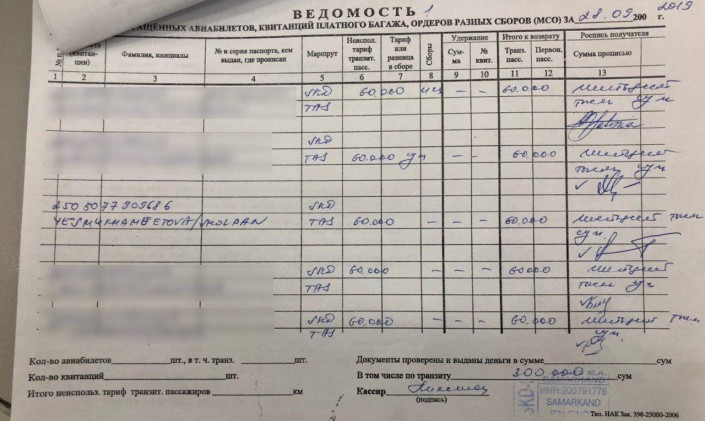 ВЕДОМОСТЬ 1
АЩЕННЫХ АВИАБИЛЕТОВ, КВИТАНЦИЙ ПЛАТНОГО БАГАЖА, ОРДЕРОВ РАЗНЫХ СБОРОВ (МСО) ЗА 28.09 200 г. 2019
(квитанции) Фамилия, инициалы № и серия паспорта, кем выдан, где прописан Маршрут Неиспол. тариф транзит. пасс. Тариф или разница в сборе Сборы Удержание Сумма № квит. Итого к возврату Транз. пасс. Первон. пасс. Роспись получателя Сумма прописью
1 2 3 4 5 6 7 8 9 10 11 12 13
SKD 60.000 – – 60.000 шестьдесят
TAS тысяч сум
SKD
TAS 60.000 – – 60.000 шестьдесят
тысяч сум
2505077909686 SKD
YESMUKHAMBETOVA/SHOLPAN TAS 60.000 – – 60.000 шестьдесят тыс
сум.
SKD 60.000 – – 60.000 шестьдесят
TAS тысяч
SKD 60.000 – – 60.000 шестьдесят тыс
TAS сум
Кол-во авиабилетов шт., в т. ч. транз. шт. Документы проверены и выданы деньги в сумме сум
Кол-во квитанций шт. В том числе по транзиту 300.000 сум
Итого неиспольз. тариф транзит. пассажиров км Кассир
(подпись)
SAMARKAND
ИНН:200791776
SAMARKAND
Тип. НАК Зак. 398-25000-2006